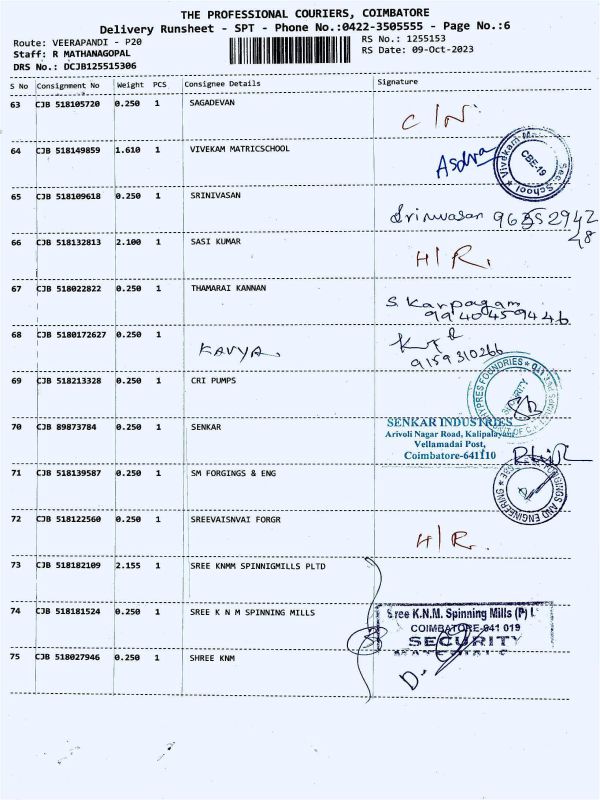 THE PROFESSIONAL COURIERS, COIMBATORE
Delivery Runsheet - SPT - Phone No.:0422-3505555 - Page No.:6
Route: VEERAPANDI - P20
RS No.: 1255153
Staff: R MATHANAGOPAL
RS Date: 09-Oct-2023
DRS No.: DCJB125515306
S No Consignment No Weight PCS Consignee Details Signature
63 CJB 518105720 0.250 1 SAGADEVAN
C/N.
64 CJB 518149859 1.610 1 VIVEKAM MATRICSCHOOL
Vivekam M Sec. School
CBE-19
65 CJB 518109618 0.250 1 SRINIVASAN
Srinivasan
66 CJB 518132813 2.100 1 SASI KUMAR
H/R.
67 CJB 518022822 0.250 1 THAMARAI KANNAN
S. Karpagam
9940459446
68 CJB 5180172627 0.250 1 KAVYA.
9159310266
69 CJB 518213328 0.250 1 CRI PUMPS
FOUNDRIES
SECURITY
70 CJB 89873784 0.250 1 SENKAR
SENKAR INDUSTRIES
Arivoli Nagar Road, Kalipalayam
Vellamadai Post,
Coimbatore-641110
71 CJB 518139587 0.250 1 SM FORGINGS & ENG
AND ENGINEERING
72 CJB 518122560 0.250 1 SREEVAISNVAI FORGR
H/R.
73 CJB 518182109 2.155 1 SREE KNMM SPINNIGMILLS PLTD
74 CJB 518181524 0.250 1 SREE K N M SPINNING MILLS
Sree K.N.M. Spinning Mills (P) L
COIMBATORE-641 019
SECURITY
75 CJB 518027946 0.250 1 SHREE KNM